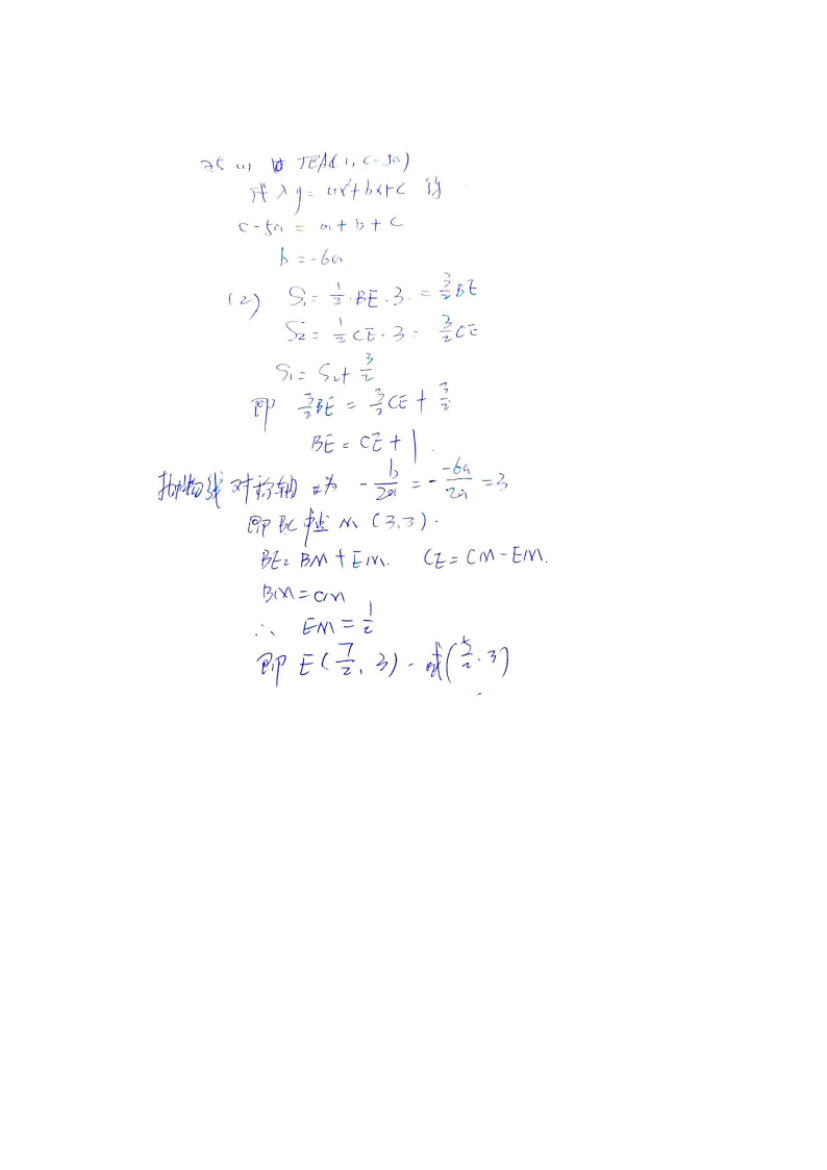 (1) 把点A(1, c-5a)
代入 y = ax²+bx+c 得
c-5a = a+b+c
b = -6a
(2) S₁ = 1/2·BE·3 = 3/2BE
S₂ = 1/2CE·3 = 3/2CE
S₁ = S₂+3/2
即 3/2BE = 3/2CE + 3/2
BE = CE+1.
抛物线对称轴为 -b/2a = -(-6a)/2a = 3
即BC中点 M (3,3).
BE = BM + EM. CE = CM-EM.
BM = CM
∴ EM = 1/2
即 E(7/2, 3). 或(5/2.3)